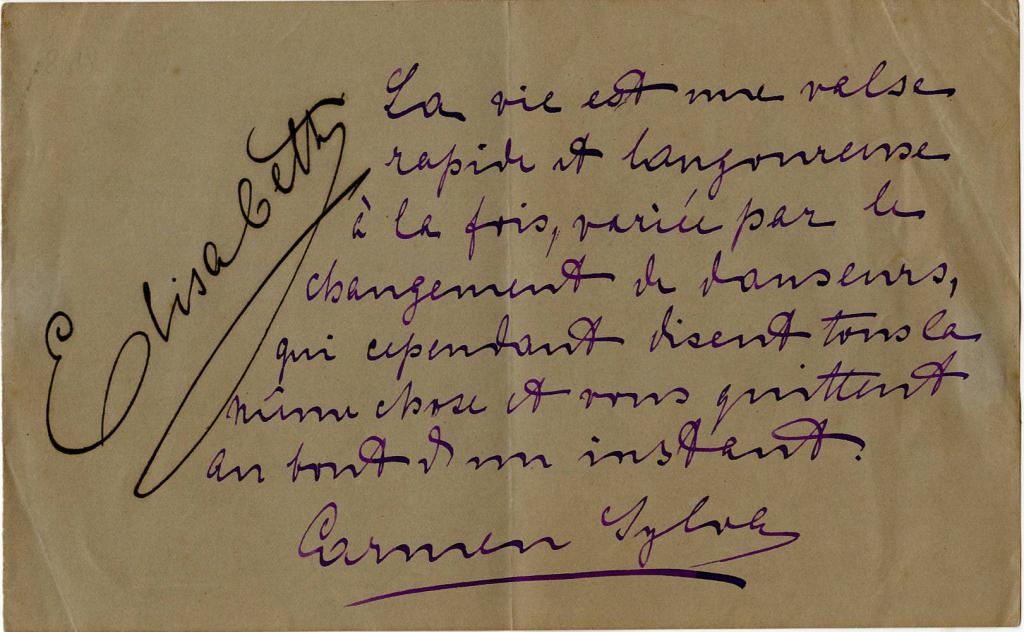 Elisabeth
La vie est une valse
rapide et langoureuse
à la fois, variée par le
changement de danseurs,
qui cependant disent tous la
même chose et vous quittent
au bout d'un instant.
Carmen Sylva